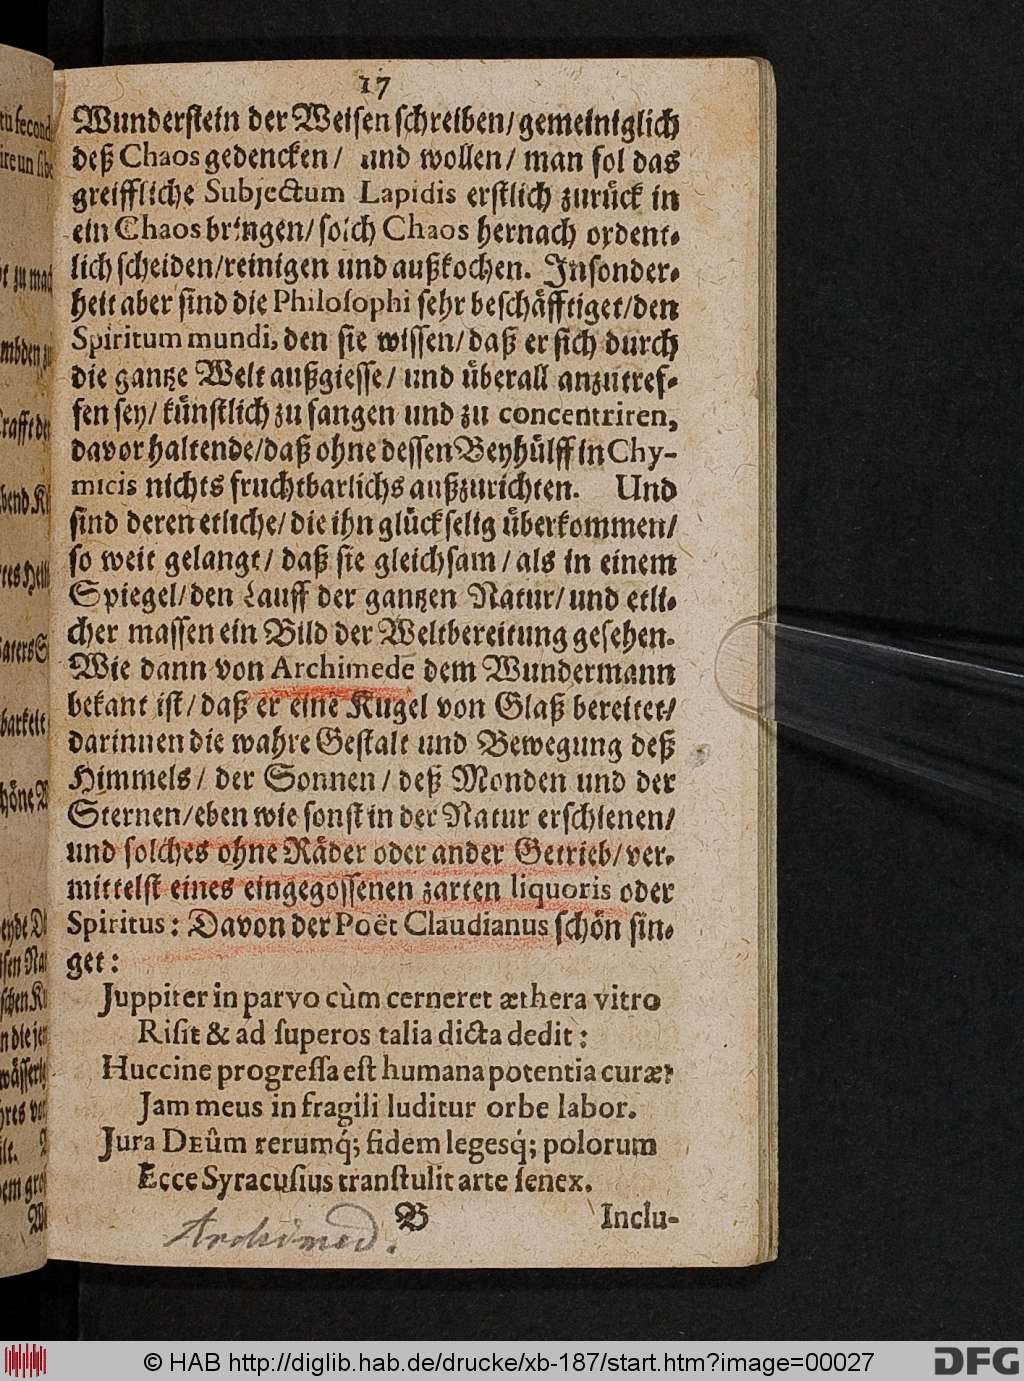 17
Wunderstein der Weisen schreiben/ gemeiniglich
deß Chaos gedencken/ und wollen/ man sol das
greiffliche Subjectum Lapidis erstlich zurück in
ein Chaos bringen/ solch Chaos hernach ordent-
lich scheiden/ reinigen und außkochen. Insonder-
heit aber sind die Philosophi sehr beschäfftiget/ den
Spiritum mundi, den sie wissen/ daß er sich durch
die gantze Welt außgiesse/ und überall anzutref-
fen sey/ künstlich zu fangen und zu concentriren,
davor haltende/ daß ohne dessen Beyhülff in Chy-
micis nichts fruchtbarlichs außzurichten. Und
sind deren etliche/ die ihn glückselig überkommen/
so weit gelangt/ daß sie gleichsam/ als in einem
Spiegel/ den Lauff der gantzen Natur/ und etli-
cher massen ein Bild der Weltbereitung gesehen.
Wie dann von Archimede dem Wundermann
bekant ist/ daß er eine Kugel von Glaß bereitet/
darinnen die wahre Gestalt und Bewegung deß
Himmels/ der Sonnen/ deß Monden und der
Sternen/ eben wie sonst in der Natur erschienen/
und solches ohne Räder oder ander Getrieb/ ver-
mittelst eines eingegossenen zarten liquoris oder
Spiritus: Davon der Poët Claudianus schön sin-
get:
Juppiter in parvo cùm cerneret æthera vitro
Risit & ad superos talia dicta dedit:
Huccine progressa est humana potentia curæ?
Jam meus in fragili luditur orbe labor.
Jura Deûm rerumq́; fidem legesq́; polorum
Ecce Syracusius transtulit arte senex.
B Inclu-
Archimed.
© HAB http://diglib.hab.de/drucke/xb-187/start.htm?image=00027
DFG